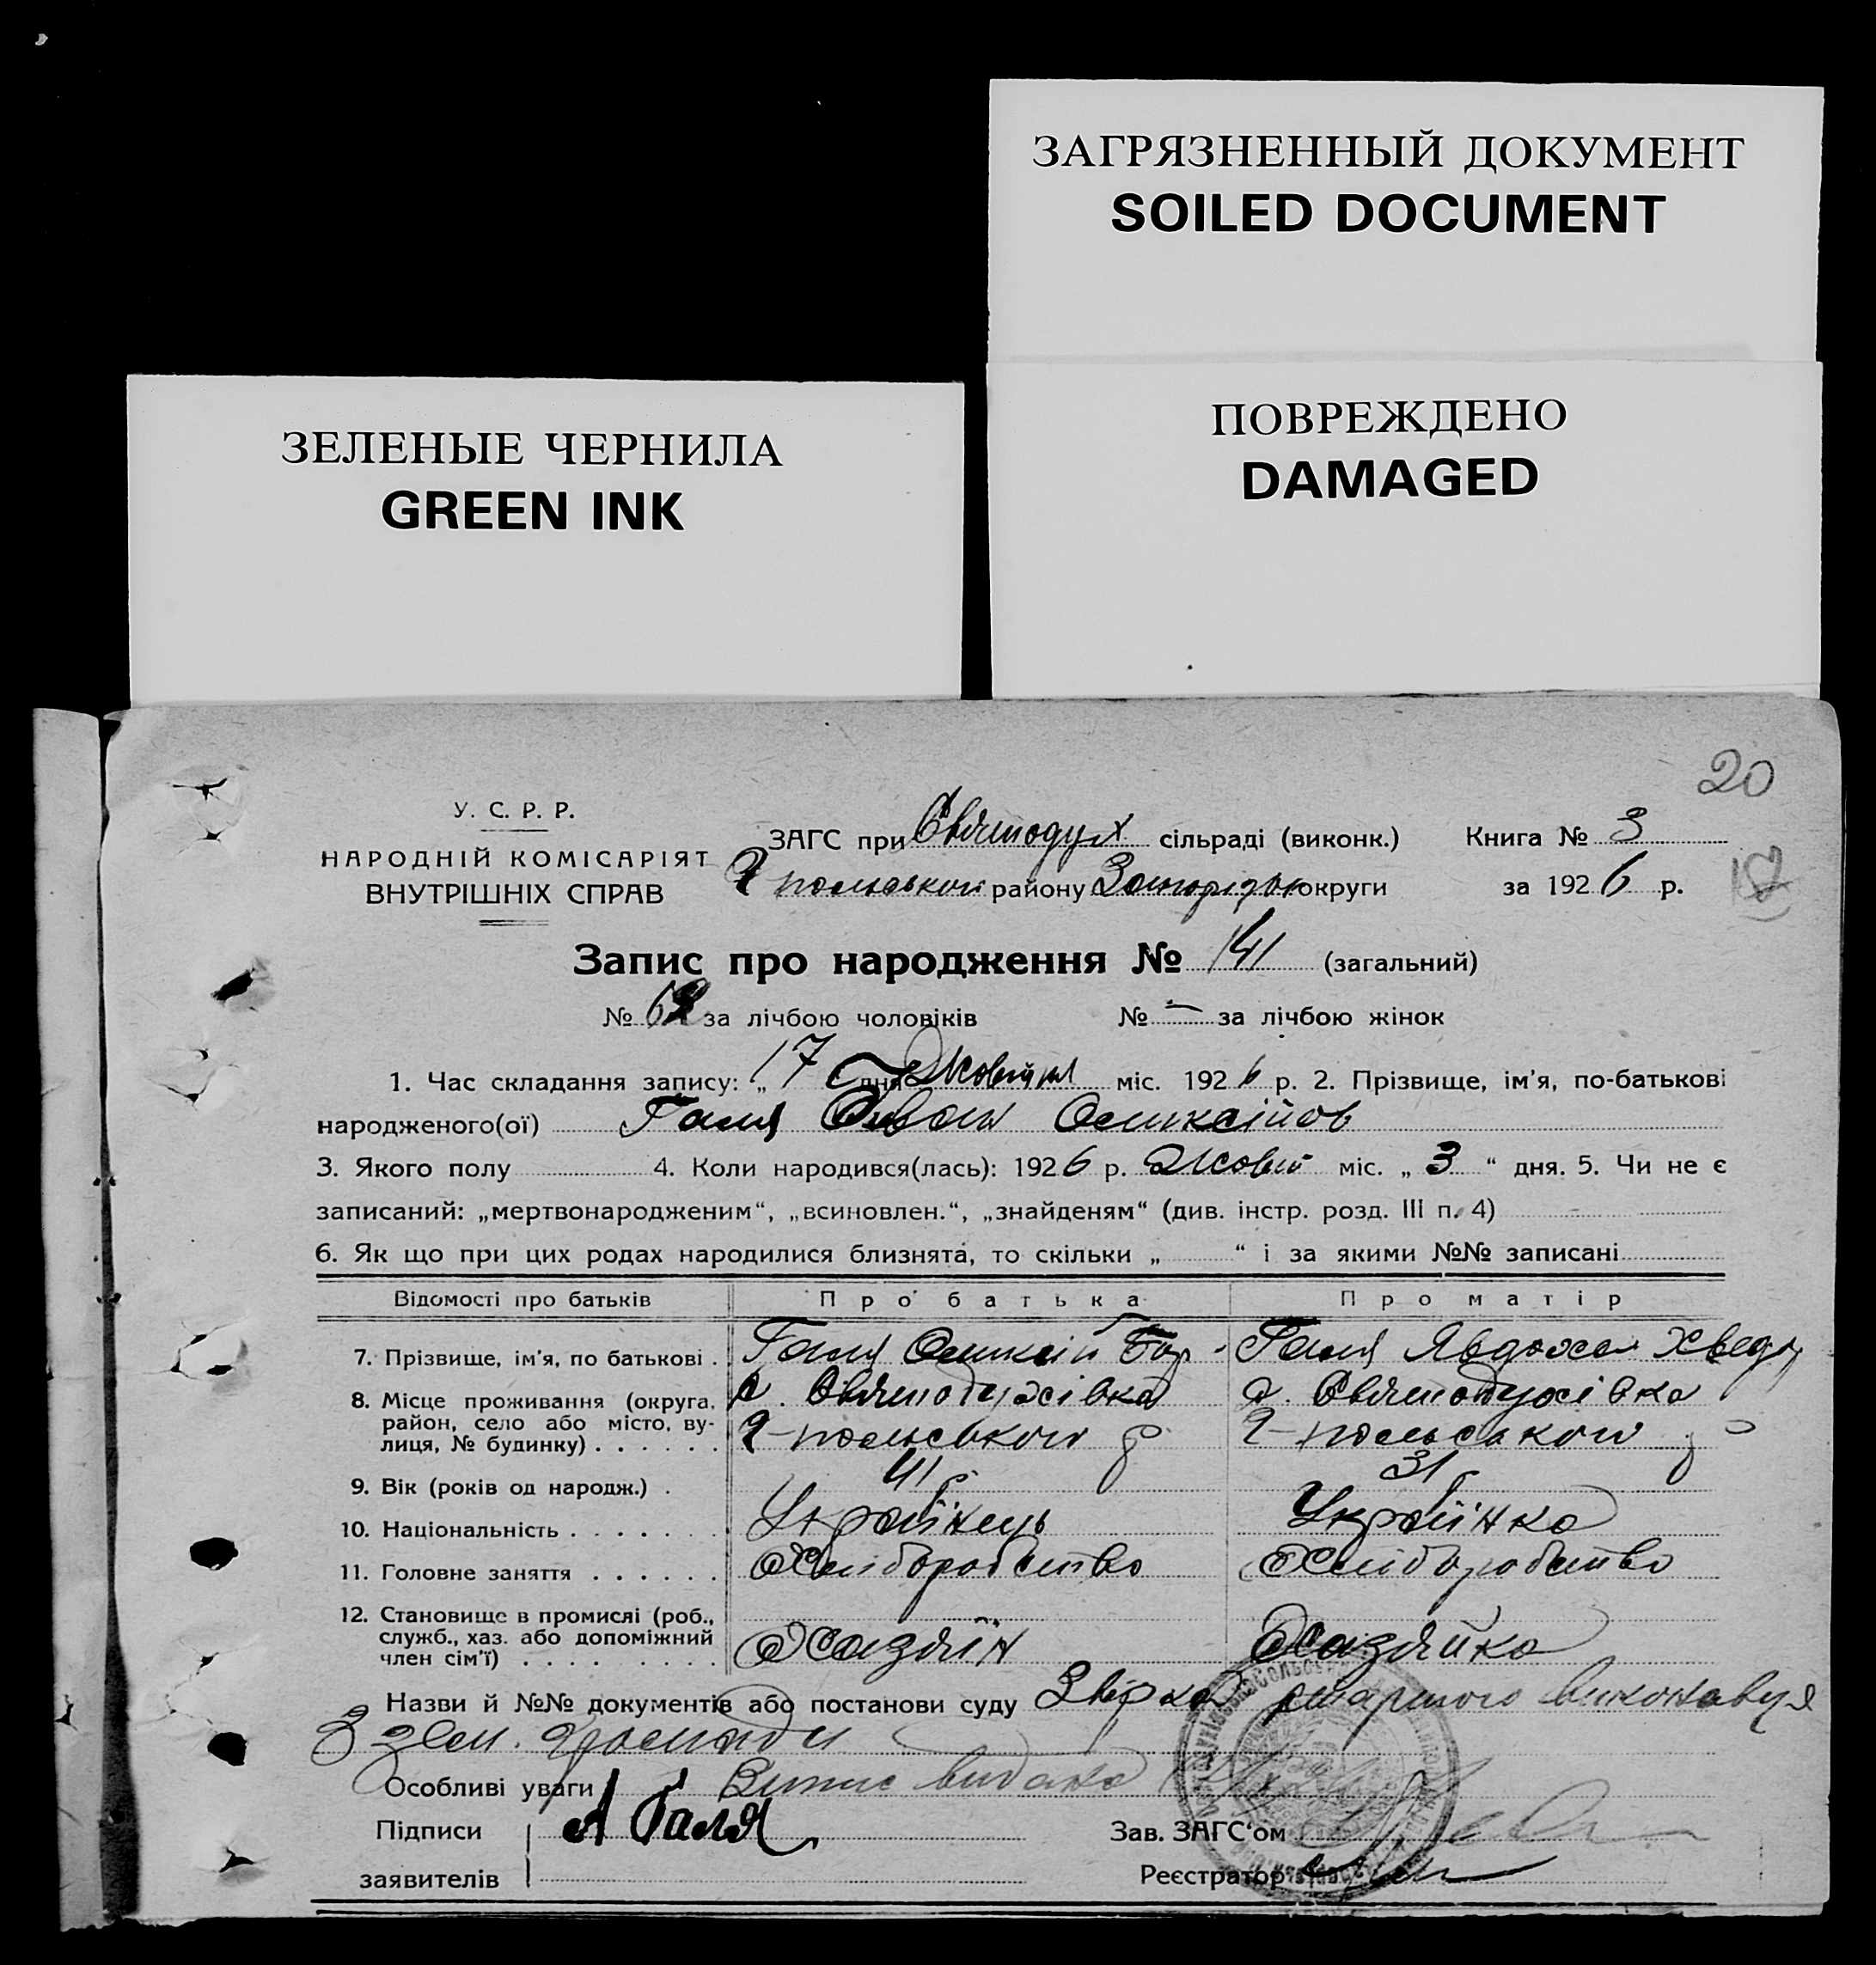 ЗАГРЯЗНЕННЫЙ ДОКУМЕНТ
SOILED DOCUMENT
ЗЕЛЕНЫЕ ЧЕРНИЛА
GREEN INK
ПОВРЕЖДЕНО
DAMAGED
20
У. С. Р. Р.
НАРОДНІЙ КОМІСАРІЯТ
ВНУТРІШНІХ СПРАВ
ЗАГС при Святодух сільраді (виконк.) Книга № 3
район у Запорізьк округи за 1926 р.
Запис про народження № 141 (загальний)
№ за лічбою чоловіків № — за лічбою жінок
1. Час складання запису: „17 дня Жовтня міс. 1926 р. 2. Прізвище, ім'я, по-батькові
народженого(ої) Галя Іван Олексійов
3. Якого полу 4. Коли народився(лась): 1926 р. Жовт міс. „3“ дня. 5. Чи не є
записаний: „мертвонародженим“, „всиновлен.“, „знайденям“ (див. інстр. розд. III п. 4)
6. Як що при цих родах народилися близнята, то скільки „ “ і за якими №№ записані
Відомості про батьків Про батька Про матір
7. Прізвище, ім'я, по батькові . Галя Олексій Галя Явдоха Хведор
8. Місце проживання (округа, район, село або місто, вулиця, № будинку) с. Святодухівка с. Святодухівка
9. Вік (років од народж.) . 41 р 31 р
10. Національність Українець Українка
11. Головне заняття Хліборобство Хліборобство
12. Становище в промислі (роб., служб., хаз. або допоміжний член сім'ї) Хазяїн Хазяйка
Назви й №№ документів або постанови суду Звірка старшого виконавця
3 зем. громади
Особливі уваги Випис видано
Підписи А Галя Зав. ЗАГС'ом
заявителів Реєстратор